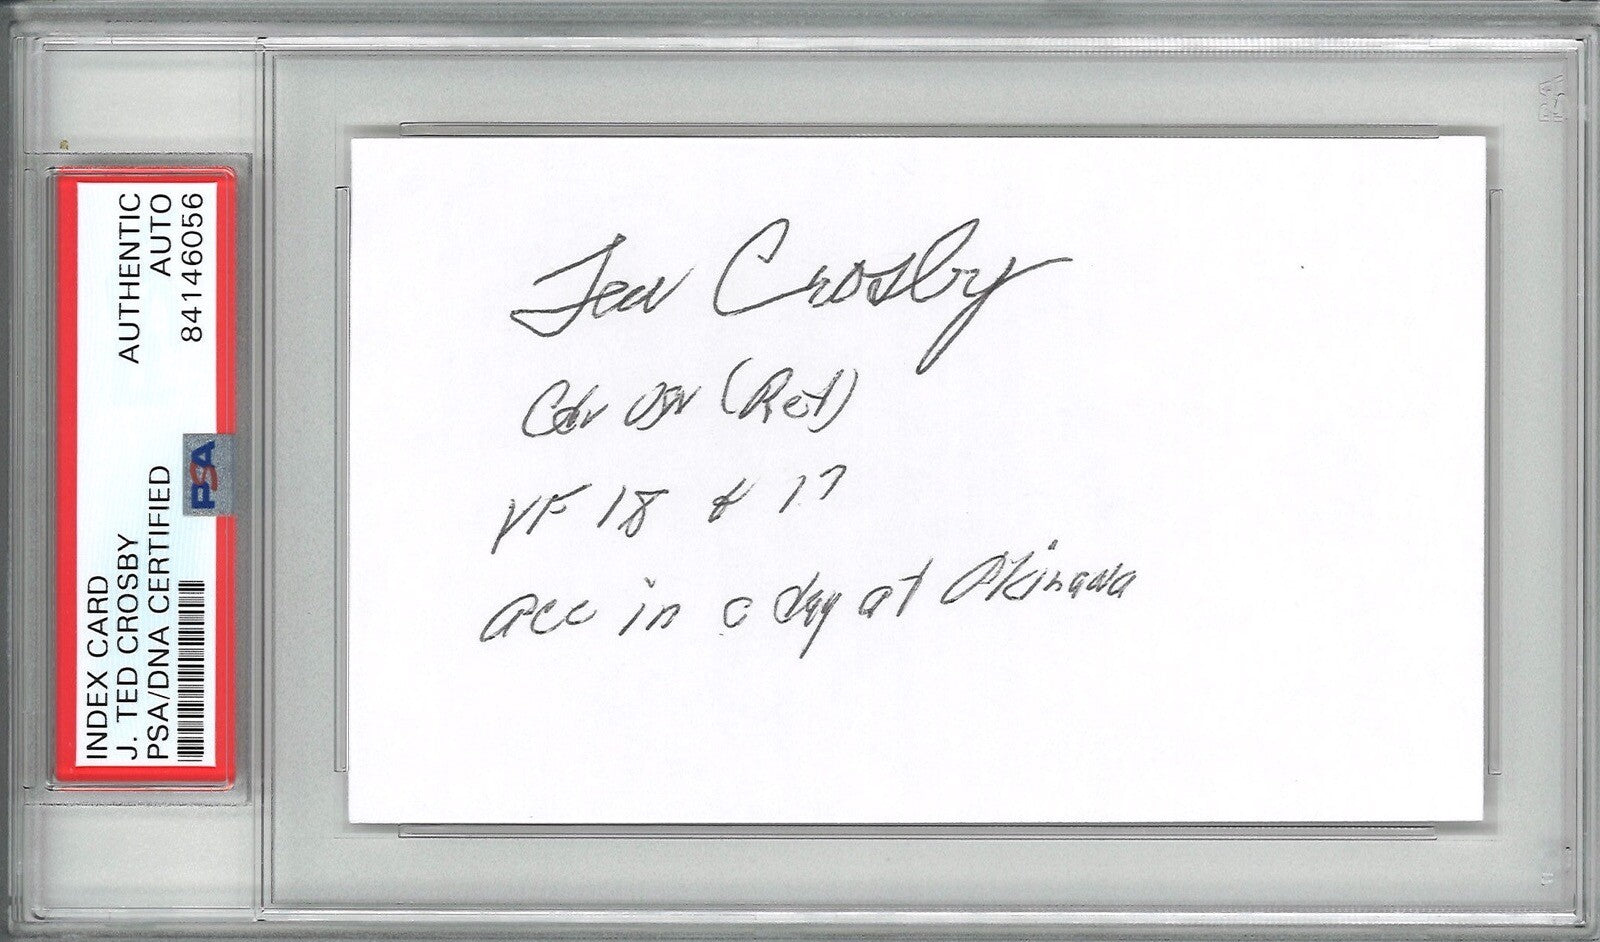 INDEX CARD
J. TED CROSBY
PSA/DNA CERTIFIED
AUTHENTIC
AUTO
84146056
PSA
Ted Crosby
Cdr USN (Ret)
VF 18 & 17
ace in a day at Okinawa
PSA